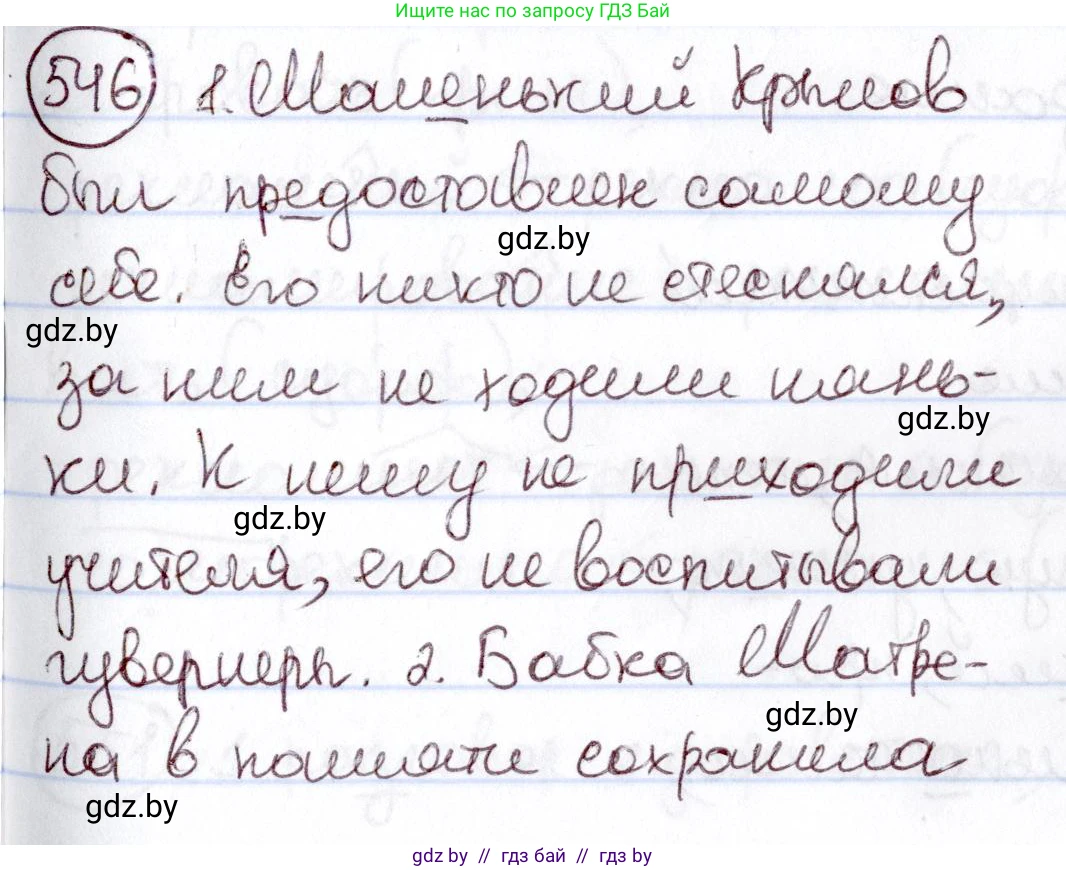 Ищите нас по запросу ГДЗ Бай
546 1. Маленький Крылов
был предоставлен самому
gdz.by
себе. Его никто не стеснялся,
gdz.by
за ним не ходили нянь-
gdz.by
ки. К нему не приходили
gdz.by
учителя, его не воспитывали
гувернеры. 2. Бабка Матре-
gdz.by
на в памяти сохранила
gdz.by
gdz.by // гдз бай // гдз by